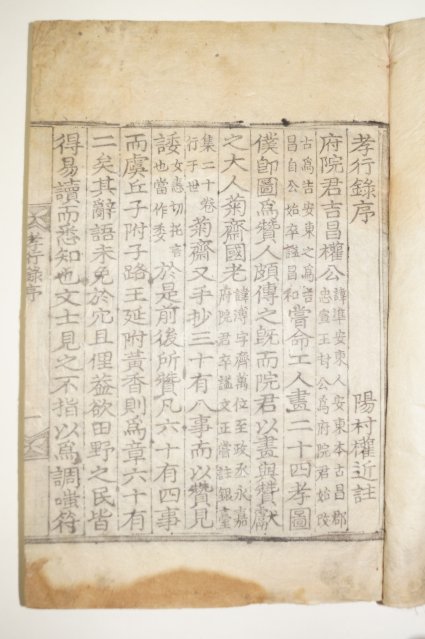 孝行錄序 陽村權近註
府院君吉昌權公諱準安東人安東本古昌郡忠宣王封公爲府院君始改
古爲吉安東之爲吉昌自公始卒謚昌和嘗命工人畫二十四孝圖
僕卽圖爲贊人頗傳之旣而院君以畫與贊獻
之大人菊齋國老諱溥字齊萬位至政丞永嘉府院君卒謚文正嘗註銀臺
集二十卷行于世菊齋又手抄三十有八事而以贊見
諉女恚切託言也當作委於是前後所贊凡六十有四事
而虞丘子附子路王延附黃香則爲章六十有
二矣其辭語未免於冗且俚蓋欲田野之民皆
得易讀而悉知也文士見之不指以爲調嗤符
孝行錄序 一